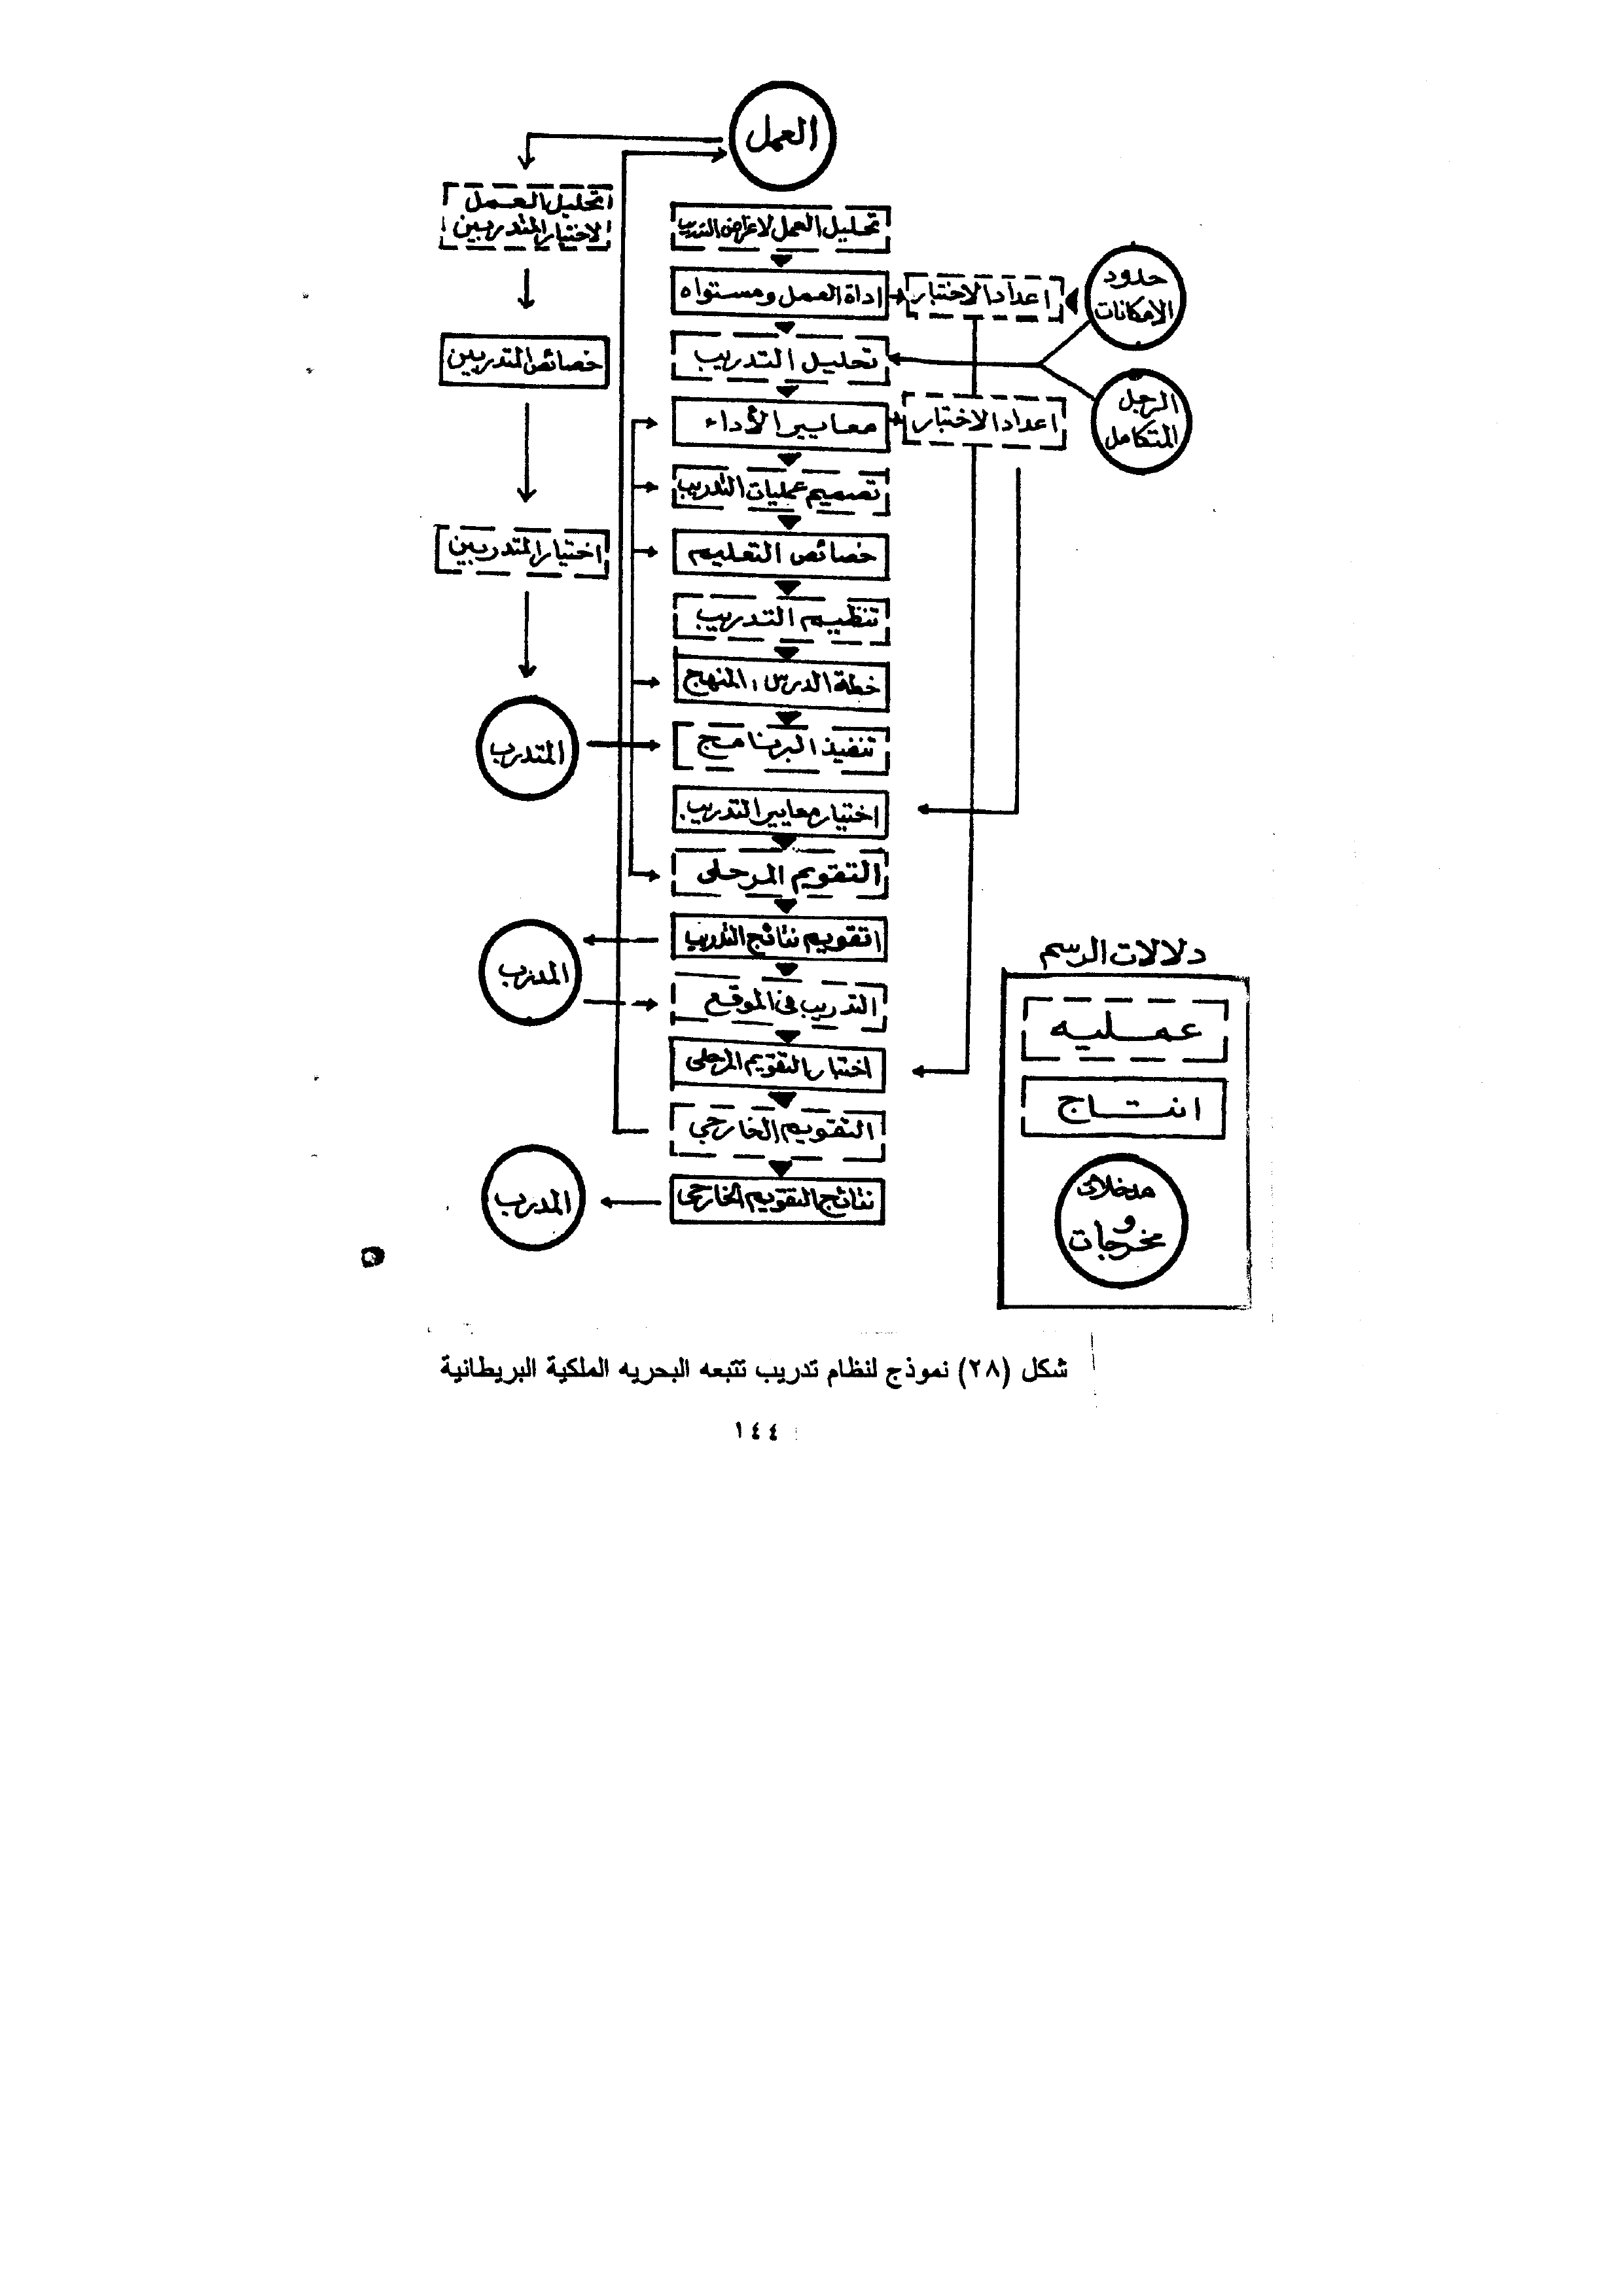 العمل
تحليل العمل
لاختيار المتدربين
خصائص المتدربين
اختيار المتدربين
المتدرب
المدرب
المدرب
تحليل العمل لاغراض التدريب
اداة العمل ومستواه
تحليل التدريب
معايير الأداء
تصميم عمليات التدريب
خصائص التعليم
تنظيم التدريب
خطة الدرس، المنهج
تنفيذ البرنامج
اختيار معايير التدريب
التقويم المرحلى
تقويم نتائج التدريب
التدريب فى الموقع
اختبار التقويم المرحلى
التقويم الخارجي
نتائج التقويم الخارجى
اعداد الاختبار
اعداد الاختبار
حدود
الامكانات
الرجل
المتكامل
دلالات الرسم
عمليه
انتاج
مدخلات
و
مخرجات
شكل (٢٨) نموذج لنظام تدريب تتبعه البحريه الملكية البريطانية
١٤٤